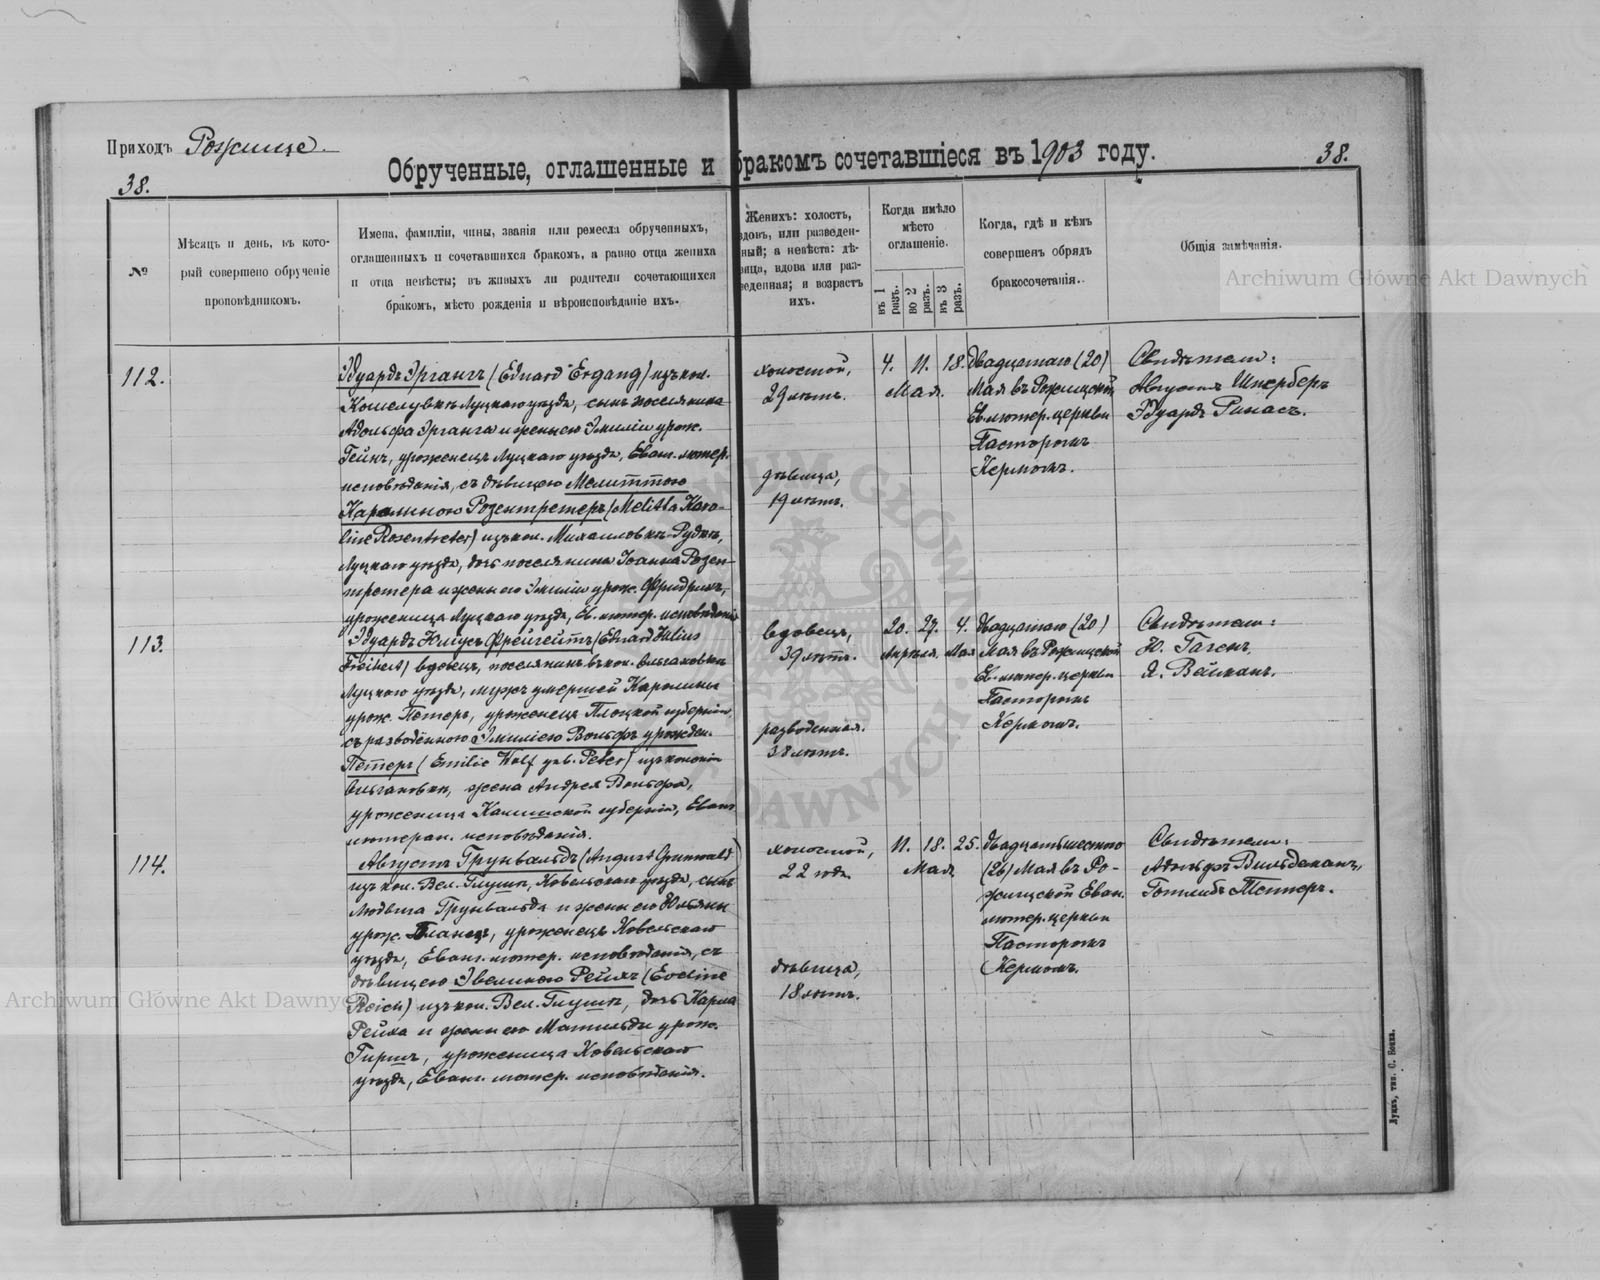 Приходъ Рожище.
38.
Обрученные, оглашенные и бракомъ сочетавшіеся въ 1903 году.
38.
№
Мѣсяцъ и день, въ кото-
рый совершено обрученіе
проповѣдникомъ.
Имена, фамиліи, чины, званія или ремесла обрученныхъ,
оглашенныхъ и сочетавшихся бракомъ, а равно отца жениха
и отца невѣсты; въ живыхъ ли родители сочетающихся
бракомъ, мѣсто рожденія и вѣроисповѣданіе ихъ.
Женихъ: холостъ,
вдовъ, или разведен-
ный; а невѣста: дѣ-
вица, вдова или раз-
веденная; и возрастъ
ихъ.
Когда имѣло
мѣсто
оглашеніе.
въ 1 разъ.
во 2 разъ.
въ 3 разъ.
Когда, гдѣ и кѣмъ
совершенъ обрядъ
бракосочетанія.
Общія замѣчанія.
112.
Эдуардъ Эргангъ (Eduard Ergang) изъ кол.
Кошелувка Луцкаго уѣзда, сынъ поселянина
Адольфа Эрганга и жены его Эмиліи урож.
Гейнъ, уроженецъ Луцкаго уѣзда, Еванг. лютер.
исповѣданія, съ дѣвицею Мелиттою
Каролиною Розентретеръ (Melitta Karo-
line Rosentreter) изъ кол. Михаиловка-Рудня,
Луцкаго уѣзда, дочь поселянина Іоанна Розен-
третера и жены его Эмиліи урож. Фридрихъ,
уроженица Луцкаго уѣзда, Ев. лютер. исповѣданія
холостой,
29 лѣтъ.
дѣвица,
19 лѣтъ.
4. 11. 18.
Мая.
Двадцатаго (20)
Мая въ Рожищской
Ев. лютер. церкви
Пасторомъ
Кермомъ.
Свидѣтели:
Августъ Шперберъ
Эдуардъ Ринасъ.
113.
Эдуардъ Юліусъ Фрейгейтъ (Eduard Julius
Freiheit) вдовецъ, поселянинъ въ кол. Ольгановка
Луцкаго уѣзда, мужъ умершей Каролины
урож. Петеръ, уроженецъ Плоцкой губерніи,
съ разведённою Эмиліею Вольфъ урожден.
Петеръ (Emilie Wolf geb. Peter) изъ колоніи
Ольгановки, жена Андрея Вольфа,
уроженица Калишской губерніи, Еванг.
лютеран. исповѣданія.
вдовецъ,
39 лѣтъ.
разведенная.
38 лѣтъ.
20. 27. 4.
Апрѣля. Мая
Двадцатаго (20)
Мая въ Рожищской
Ев. лютер. церкви
Пасторомъ
Кермомъ.
Свидѣтели:
Ю. Гагенъ,
Я. Вейманъ.
114.
Августъ Грунвальдъ (August Grunwald)
изъ кол. Вел. Глуша, Ковельскаго уѣзда, сынъ
Людвига Грунвальда и жены его Юльяны
урож. Планцъ, уроженецъ Ковельскаго
уѣзда, Еванг. лютер. исповѣданія, съ
дѣвицею Эвелиною Рейхъ (Eveline
Reich) изъ кол. Вел. Глуша, дочь Карла
Рейха и жены его Матильды урож.
Гиршъ, уроженица Ковельскаго
уѣзда, Еванг. лютер. исповѣданія.
холостой,
22 года.
дѣвица,
18 лѣтъ.
11. 18. 25.
Мая
Двадцать шестаго
(26) Мая въ Ро-
жищской Еван.
лютер. церкви
Пасторомъ
Кермомъ.
Свидѣтели:
Адольфъ Вильдеманъ,
Готлибъ Тепперъ.
Луцкъ, тип. С. Бокка.
Archiwum Główne Akt Dawnych
Archiwum Główne Akt Dawnych